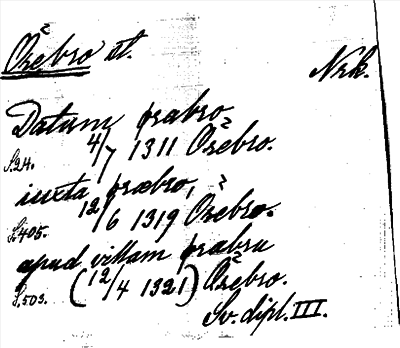 Örebro st. Nrk.
Datum ørabro
4/7 1311 Örebro.
S.24.
iuxta præbro, ?
12/6 1319 Örebro.
S.405.
apud villam ørabru
(12/4 1321) Örebro.
S.503.
Sv. dipl. III.